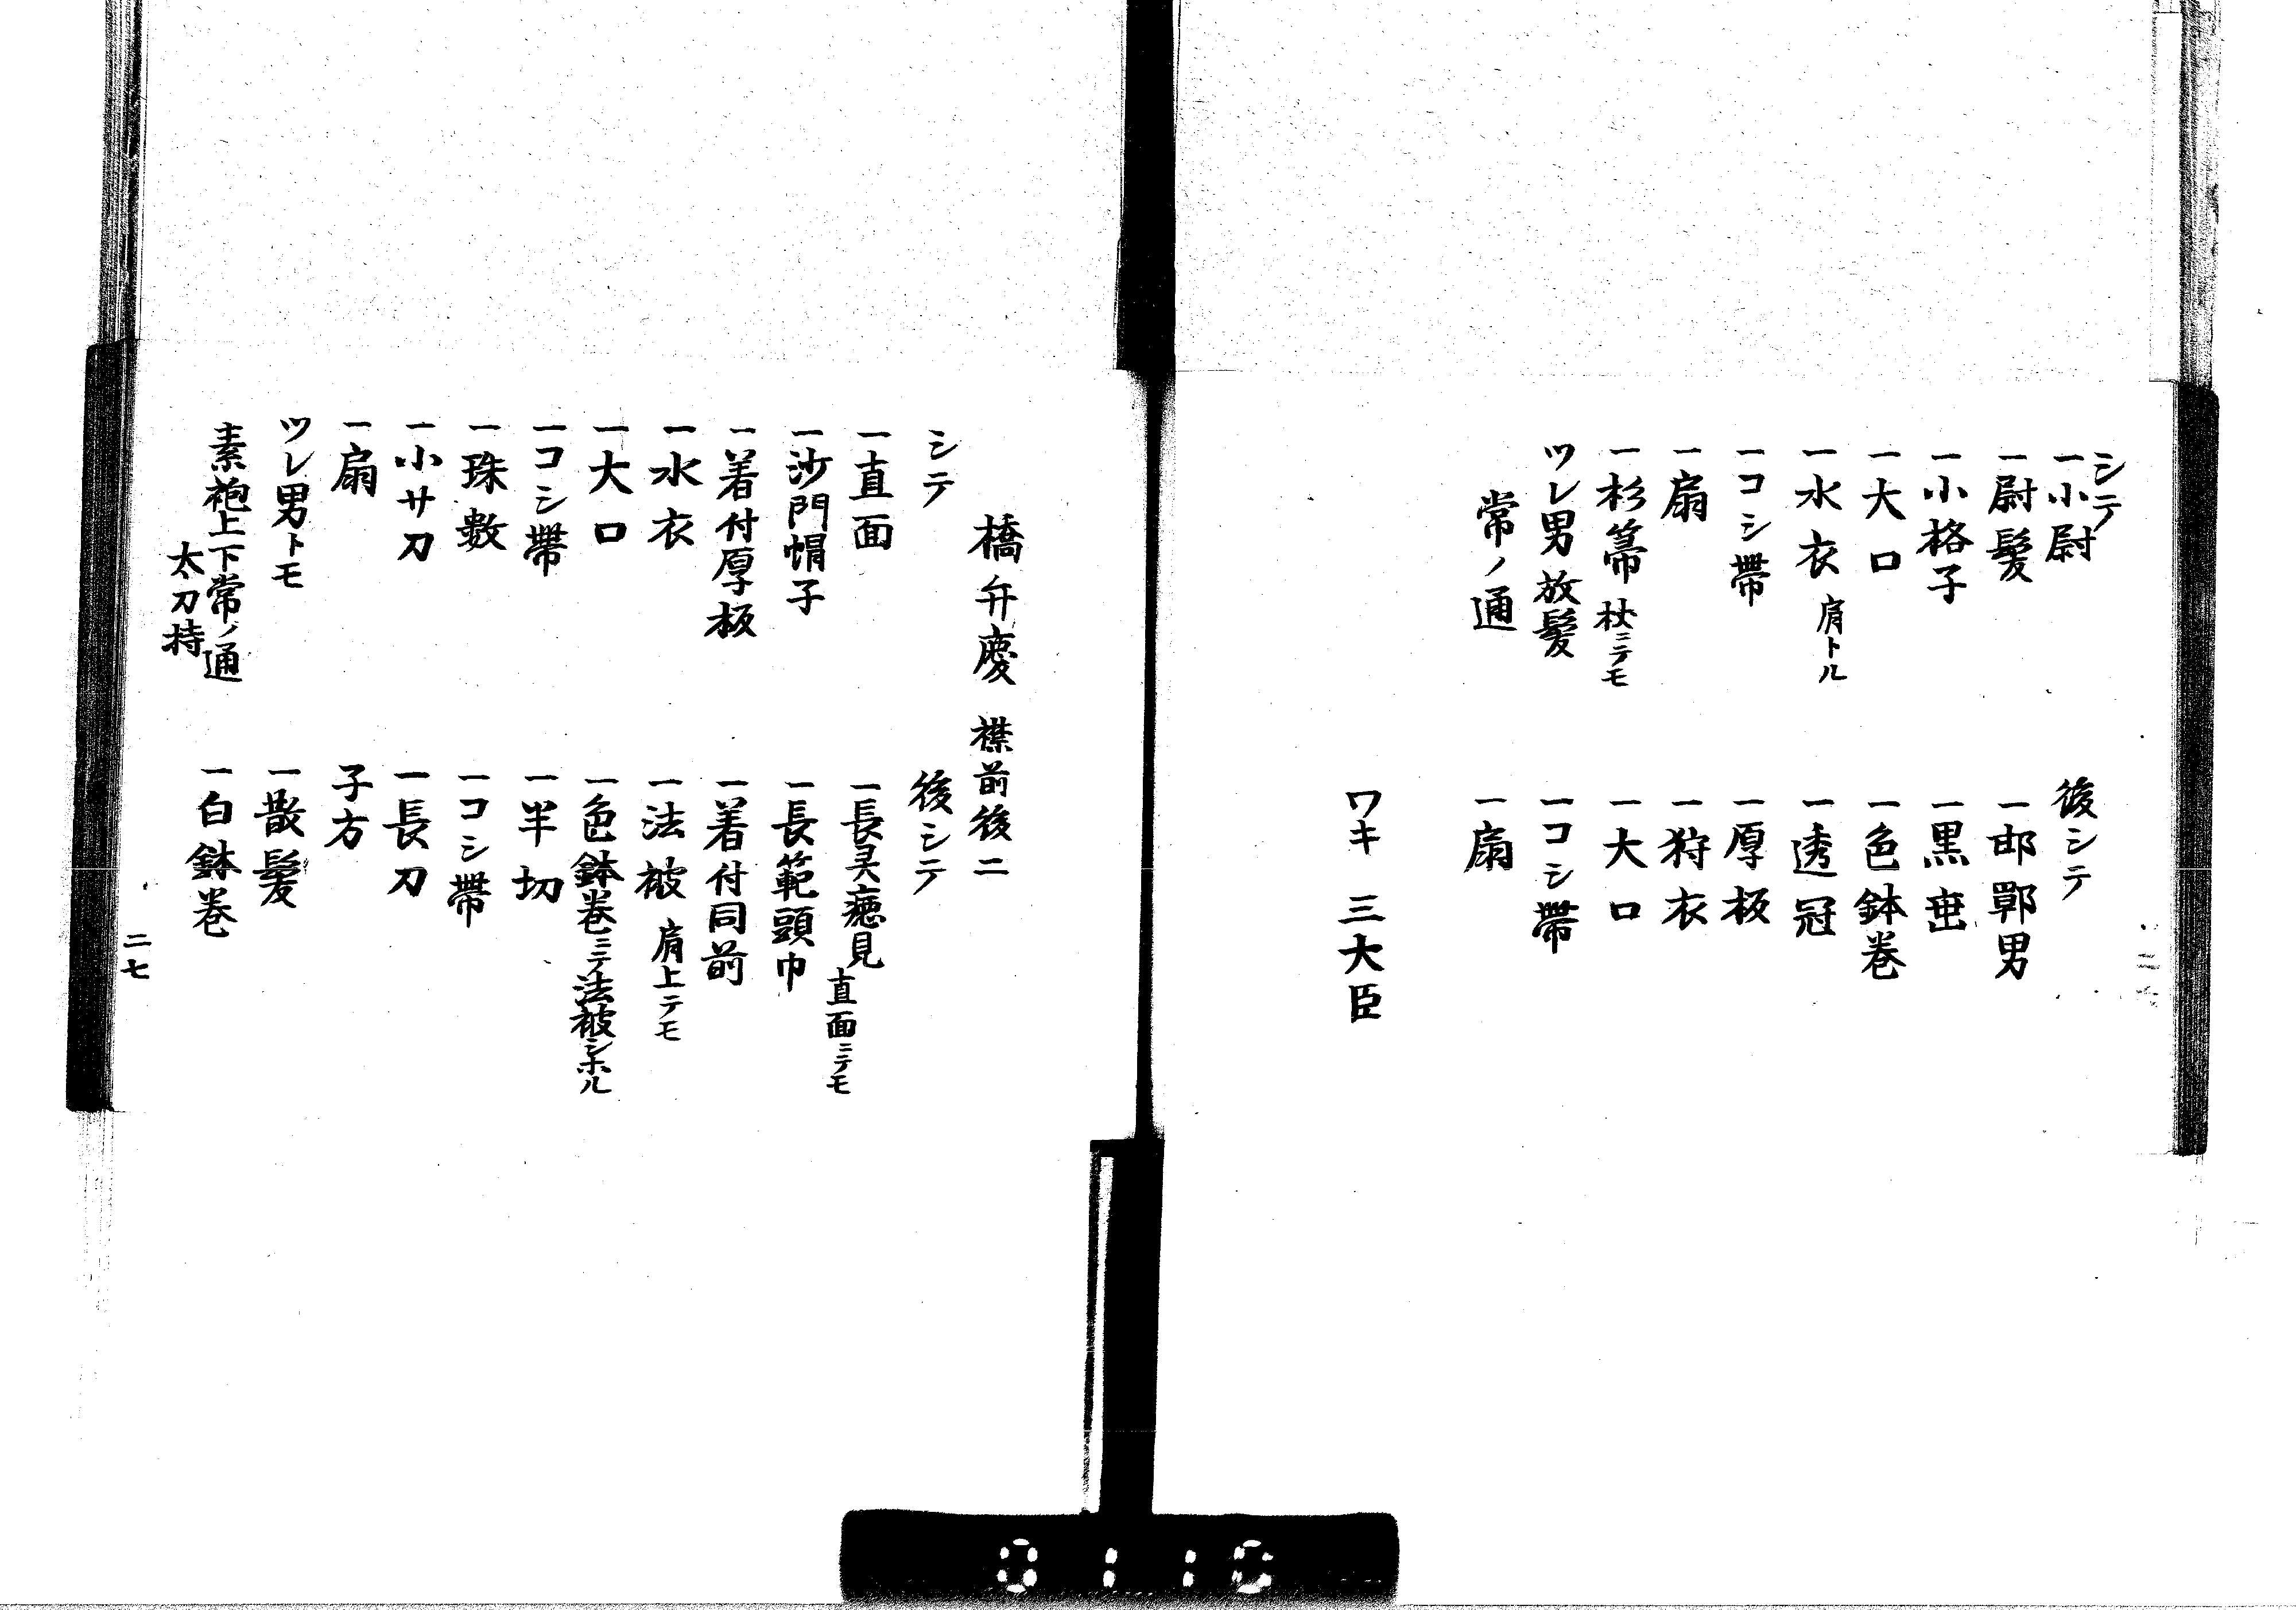 シテ
一小尉
一尉髪
一小格子
一大口
一水衣 肩トル
一コシ帯
一扇
一杉箒 杖ニテモ
ツレ男 放髪
常ノ通
後シテ
一邯鄲男
一黒垂
一色鉢巻
一透冠
一厚板
一狩衣
一大口
一コシ帯
一扇
ワキ 三大臣
橋弁慶 襟前後二
シテ
一直面
一沙門帽子
一着付厚板
一水衣
一大口
一コシ帯
一珠数
一小サ刀
一扇
ツレ男トモ
素袍上下常ノ通
太刀持
後シテ
一長灵癋見 直面ニテモ
一長範頭巾
一着付同前
一法被 肩上テモ
一色鉢巻ニテ法被シホル
一半切
一コシ帯
一長刀
子方
一散髪
一白鉢巻
二七